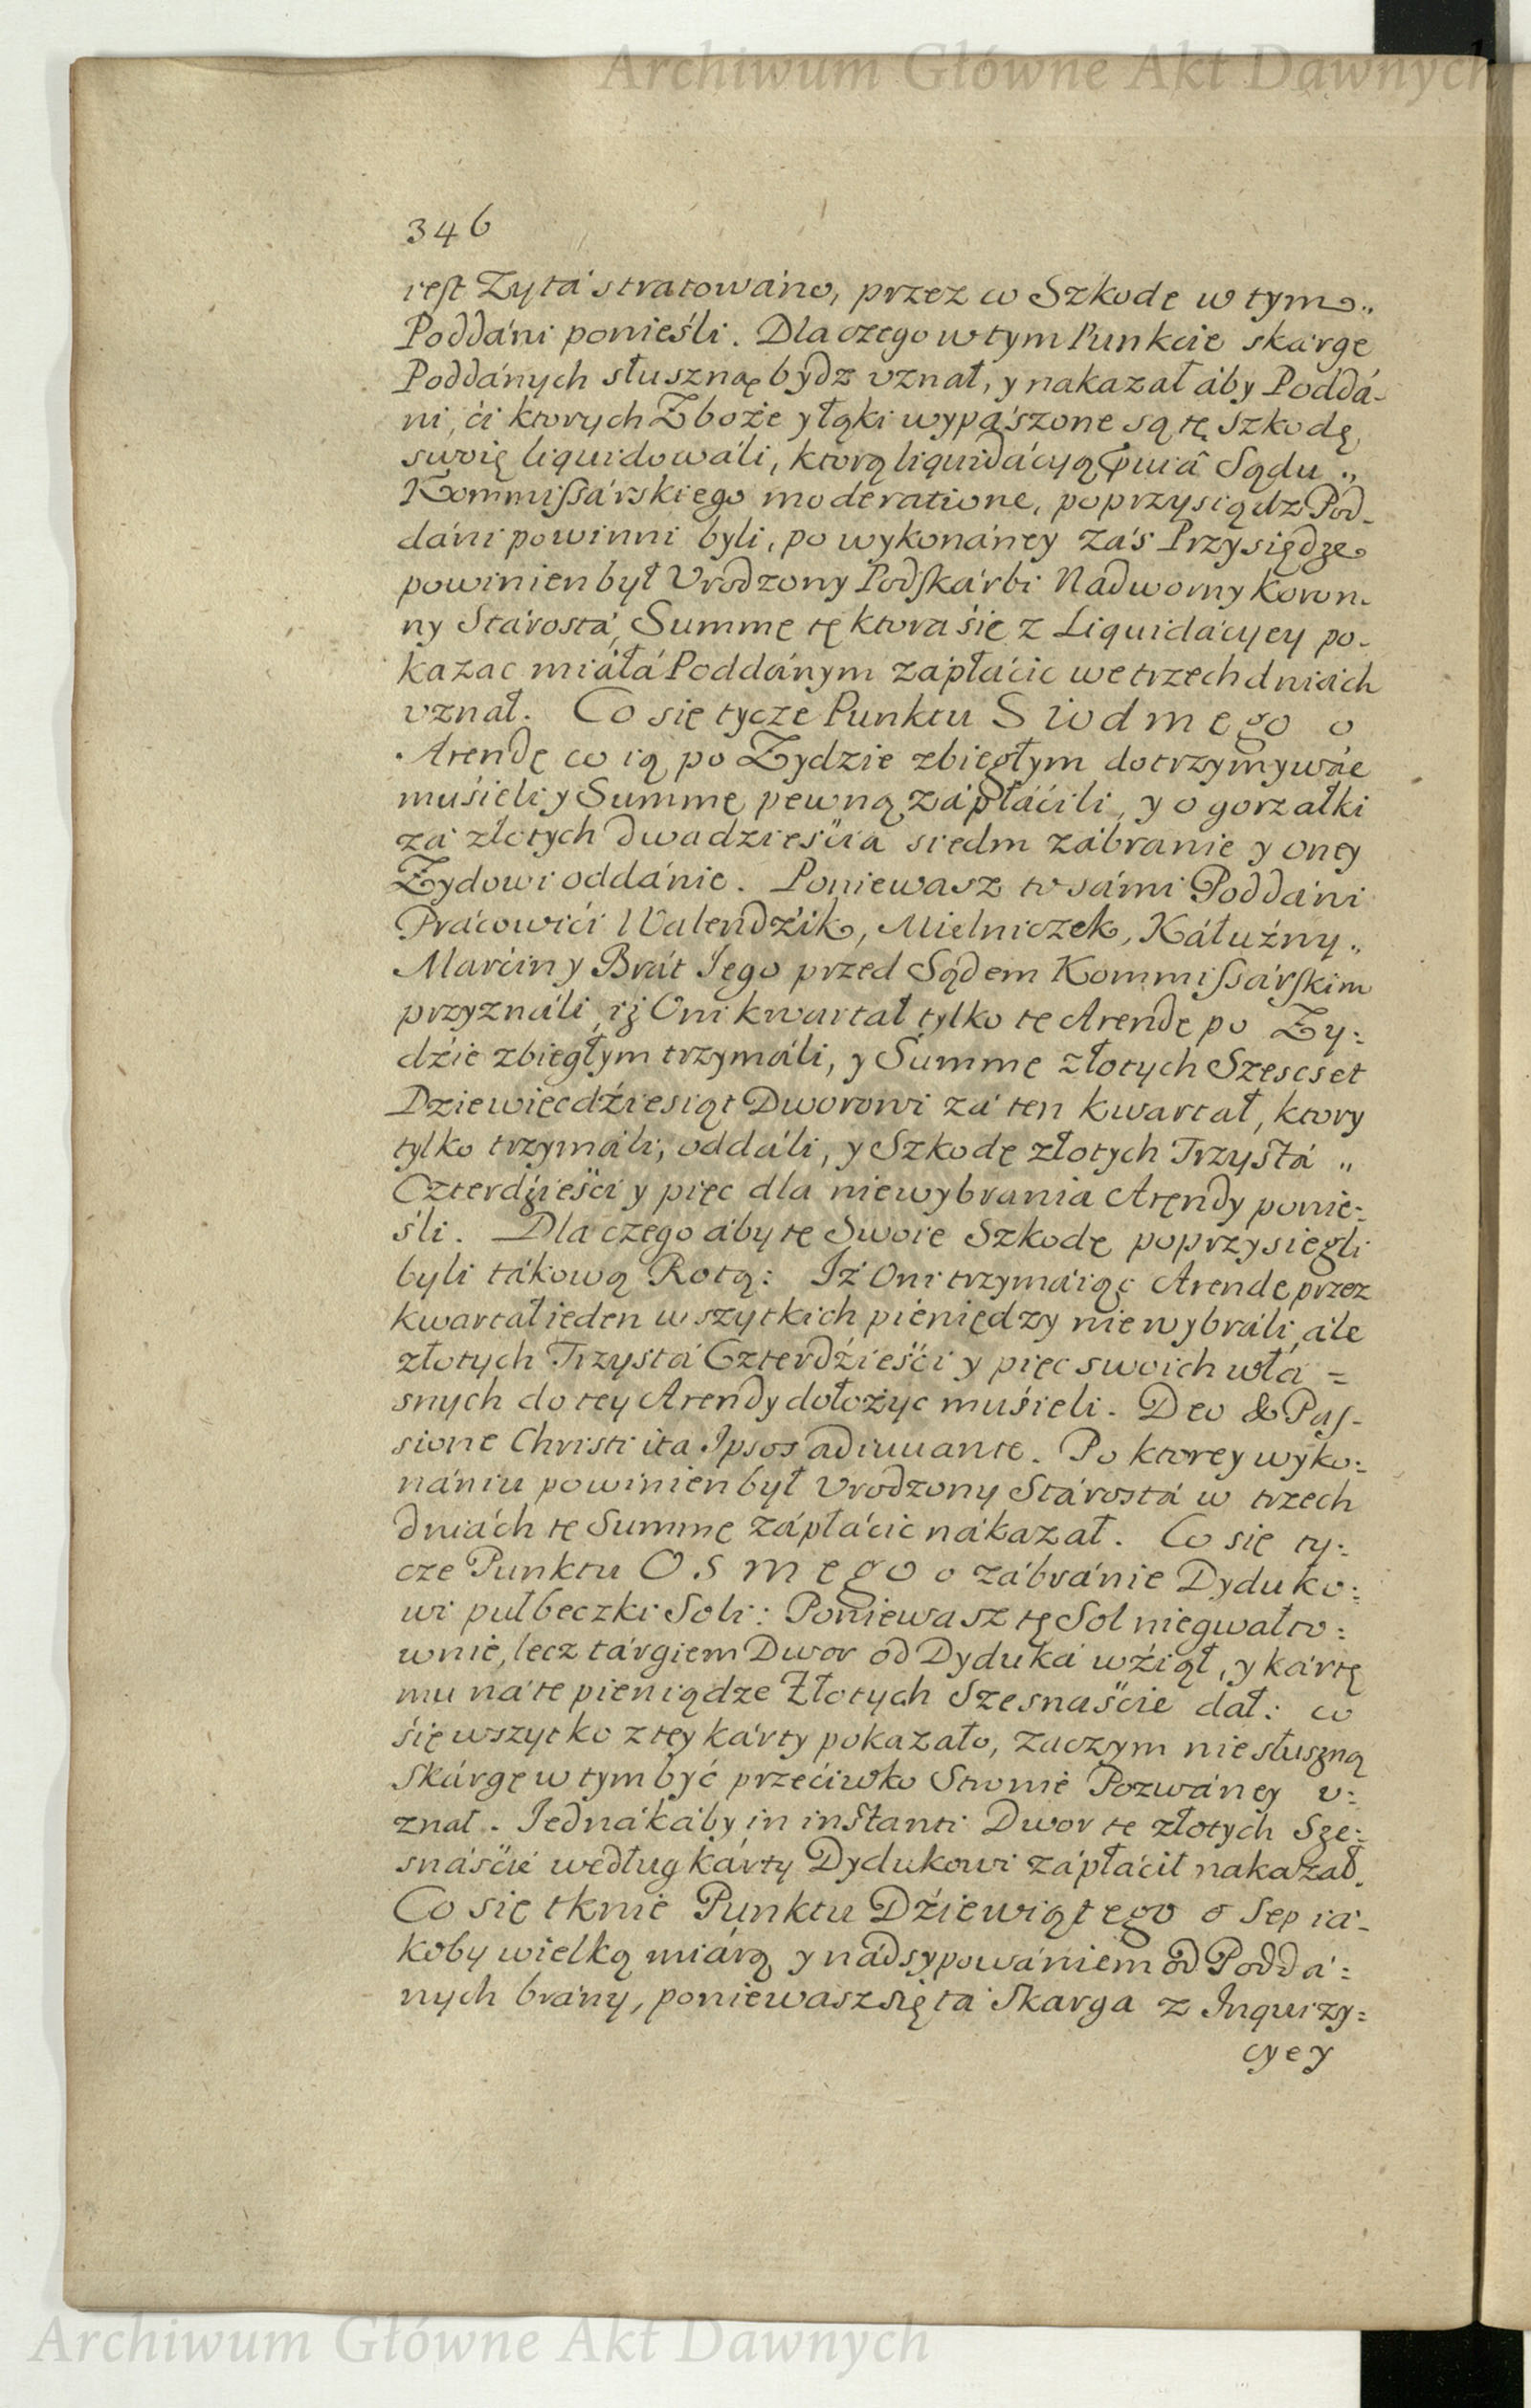 Archiwum Główne Akt Dawnych
346
iest Zytá stratowáno, przez co Szkode w tym„
Poddáni ponieśli. Dla czego w tym Punkcie skárgę
Poddánych słuszną bydz vznał, y nakazał áby Poddá-
ni, ći ktorych Zboże y łąki wypászone są tę Szkodę,
swoię liquidowáli, ktorą liquidácyą Sądu„
Kommißárskiego moderatione, poprzysiądz Pod-
dáni powinni byli, po wykonáney zaś Przysiędze
powinien był Vrodzony Podskárbi Nadworny Koron-
ny Stárostá, Summę tę ktora się z Liquidácyey po-
kazac miáłá Poddánym zápłácic we trzech dniách
vznał. Co się tycze Punktu Siodmego o
Arendę co ią po Zydzie zbiegłym dotrzymywáć
muśieli y Summę pewną zápłáćili, y o gorzałki
zá złotych dwadzieśćia siedm zábranie y oney
Zydowi oddánie. Poniewasz to sámi Poddáni
Prácowići Walendźik, Mielniczek, Káłuźny„
Marćin y Brát Iego przed Sądem Kommißárskim
przyználi, iż Oni kwartał tylko tę Arendę po Zy:
dźie zbiegłym trzymáli, y Summę złotych Szescset
Dziewięcdźiesiąt Dworowi zá ten kwartał, ktory
tylko trzymáli, oddáli, y Szkodę złotych Trzystá „
Czterdźieśći y pięc dla niewybrania Arendy ponie:
śli. Dla czego áby tę Swoię Szkodę poprzysięgli
byli tákową Rotą: Iż Oni trzymáiąc Arendę przez
kwartał ieden wszytkich pieniędzy nie wybráli, ále
złotych Trzystá Czterdźieśći y pięc swoich włá =
snych do tey Arendy dołożyc muśieli. Deo & Pas-
sione Christi ita Ipsos adiuuante. Po ktorey wyko:
nániu powinien był Vrodzony Stárostá w trzech
dniách tę Summę zápłácic nákazał. Co się ty:
cze Punktu Osmego o zábránie Dyduko:
wi pułbeczki Soli: Poniewasz tę Sol niegwałto:
wnie, lecz tárgiem Dwor od Dyduká wźiął, y kártę
mu ná te pieniądze Złotych Szesnaśćie dał: co
się wszytko z tey kárty pokazało, zaczym niesłuszną
Skárgę w tym być przećiwko Stronie Pozwáney v:
znał. Iednák áby in instanti Dwor te złotych Sze:
snáśćie według kárty Dydukowi zápłácił nakazał.
Co się tknie Punktu Dźiewiątego o Sep iá-
koby wielką miárą y nádsypowániem od Poddá:
nych brány, poniewasz się tá Skarga z Inquizy:
cyey
Archiwum Główne Akt Dawnych